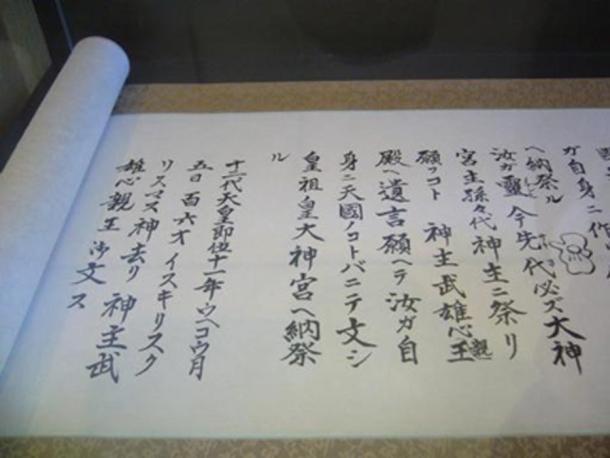 ガ自身ニ作
ヘ納祭ル
汝ガ靈今先代必ズ大神
宮主孫々代神主ニ祭リ
願フコト 神主武雄心親王
殿ヘ遺言願ヘテ汝ガ自
身ニ天國ノコトバニテ文シ
皇祖皇大神宮ヘ納祭
ル
十二代天皇即位十一年ウヘコウ月
五日 百六才 イスキリスク
リスマス神去リ 神主武
雄心親王御文ス